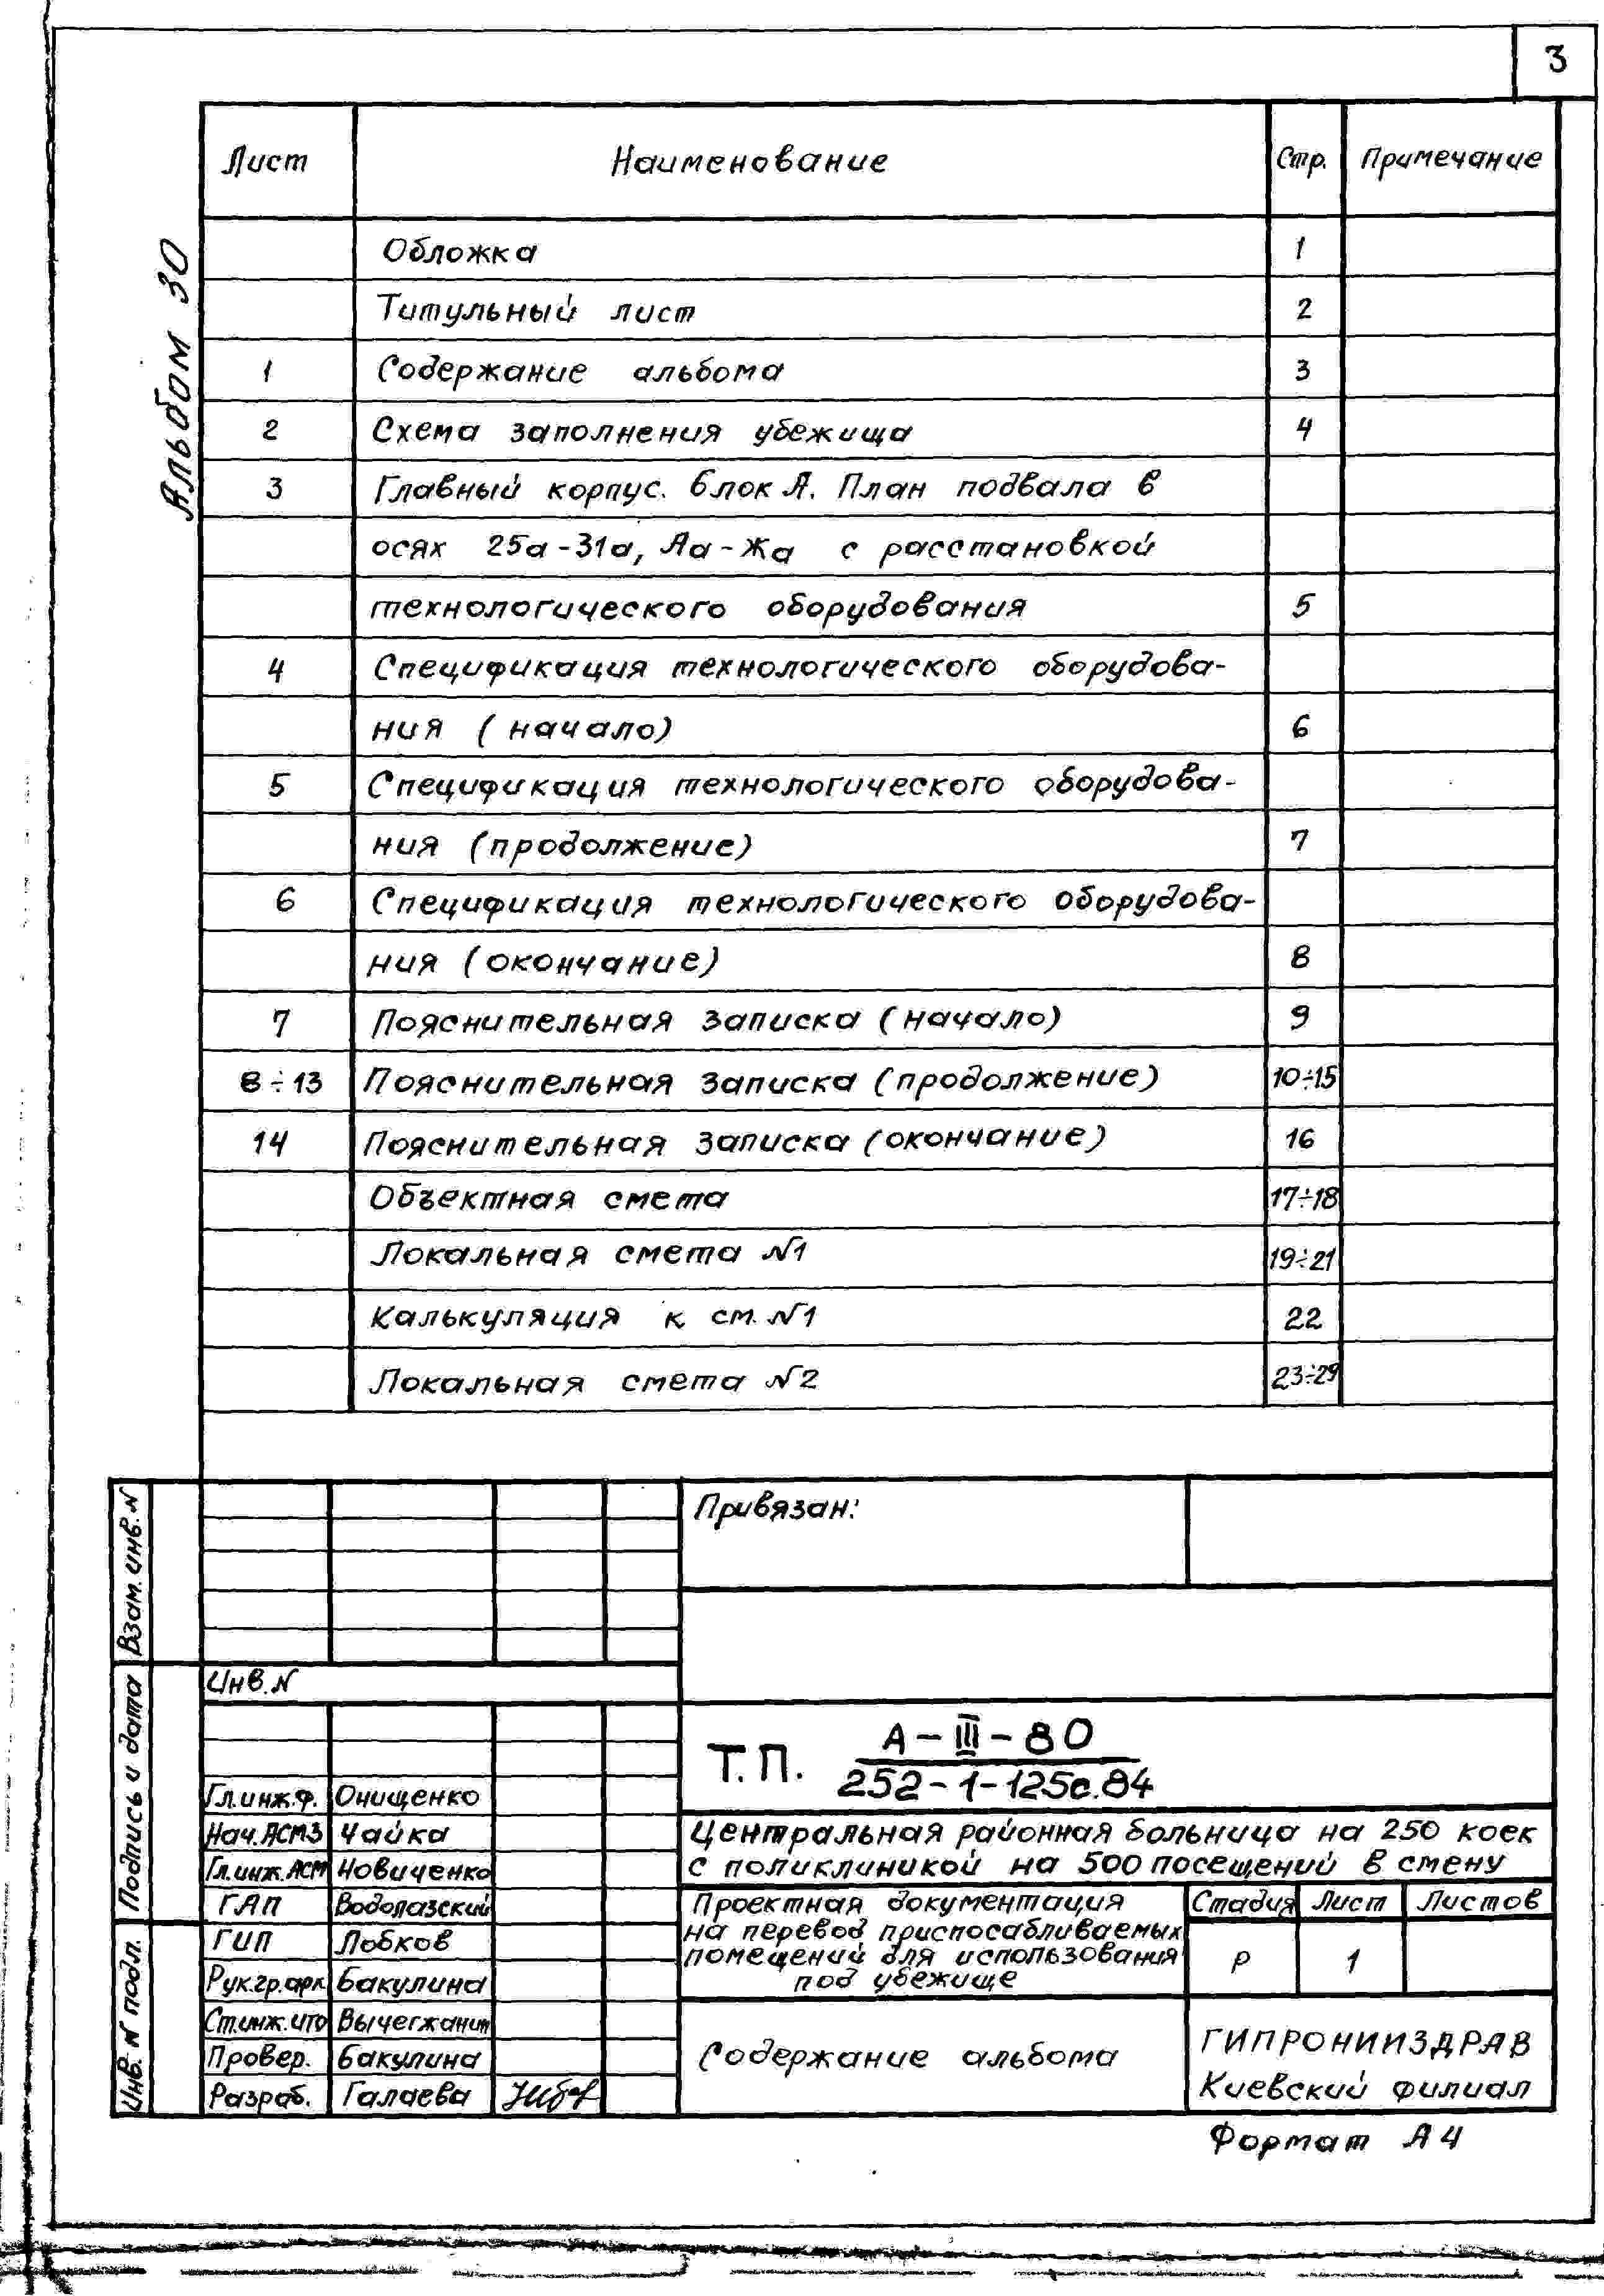 3
Альбом 30
Лист Наименование Стр. Примечание
Обложка 1
Титульный лист 2
1 Содержание альбома 3
2 Схема заполнения убежища 4
3 Главный корпус. Блок А. План подвала в
осях 25а-31а, Аа-Жа с расстановкой
технологического оборудования 5
4 Спецификация технологического оборудова-
ния (начало) 6
5 Спецификация технологического оборудова-
ния (продолжение) 7
6 Спецификация технологического оборудова-
ния (окончание) 8
7 Пояснительная записка (начало) 9
8÷13 Пояснительная записка (продолжение) 10÷15
14 Пояснительная записка (окончание) 16
Объектная смета 17÷18
Локальная смета N1 19÷21
Калькуляция к см. N1 22
Локальная смета N2 23÷29
Взам. инв. N
Подпись и дата
Инв. N подл.
Привязан:
Инв. N
Т.П. А-III-80
252-1-125с.84
Гл.инж.ф. Онищенко
Нач.АСМЗ Чайка
Гл.инж.АСМ Новиченко
ГАП Водолазский
ГИП Лобков
Рук.гр.арх. Бакулина
Ст.инж.ИТО Вычегжанин
Провер. Бакулина
Разраб. Галаева
Центральная районная больница на 250 коек
с поликлиникой на 500 посещений в смену
Проектная документация
на перевод приспосабливаемых
помещений для использования
под убежище
Стадия Лист Листов
Р 1
Содержание альбома
ГИПРОНИИЗДРАВ
Киевский филиал
Формат А4